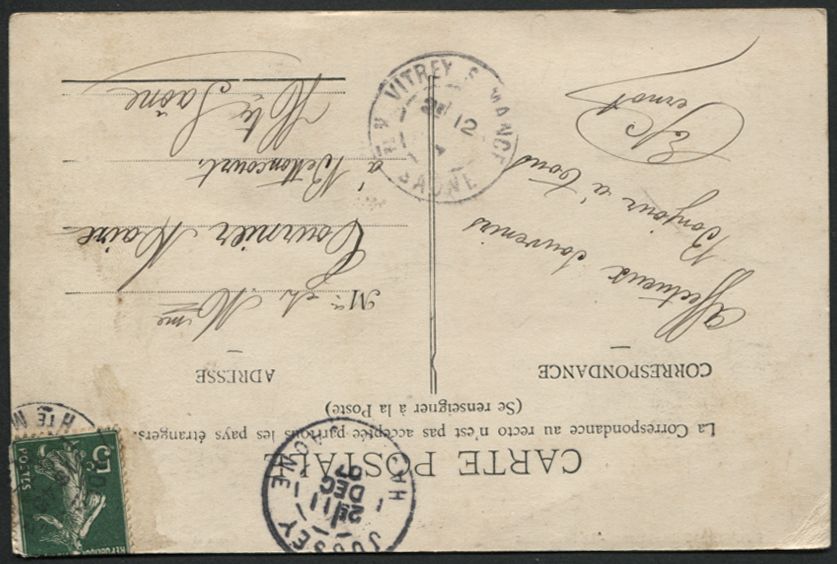 CARTE POSTALE
La Correspondance au recto n'est pas acceptée par tous les pays étrangers.
(Se renseigner à la Poste)
CORRESPONDANCE
Affectueux souvenirs
Bonjour à tous
Pernot
ADRESSE
Mr et Mme
Tournier Maire
à Bettoncourt,
Hte Saône
VITREY S MANCE
12
SAÔNE
JUSSEY
2E / 11
DEC
07
HTE M
5c
POSTES